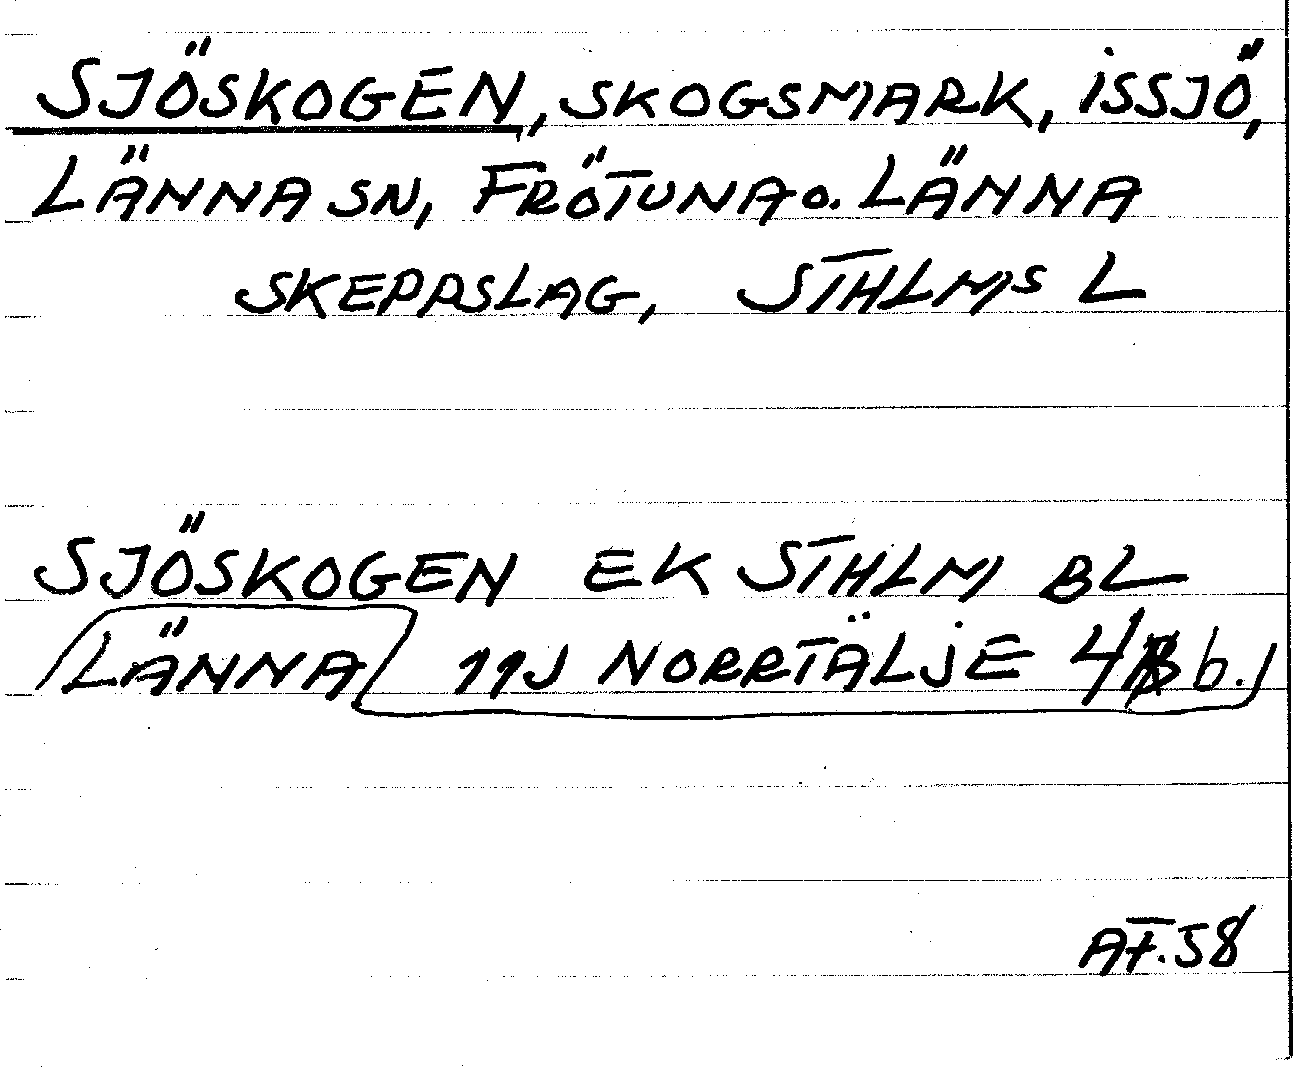 SJÖSKOGEN, SKOGSMARK, ISSJÖ,
LÄNNA SN, FRÖTUNA O. LÄNNA
SKEPPSLAG, STHLMS L
SJÖSKOGEN EK STHLM BL
LÄNNA 11J NORRTÄLJE 4 b.
AF.58